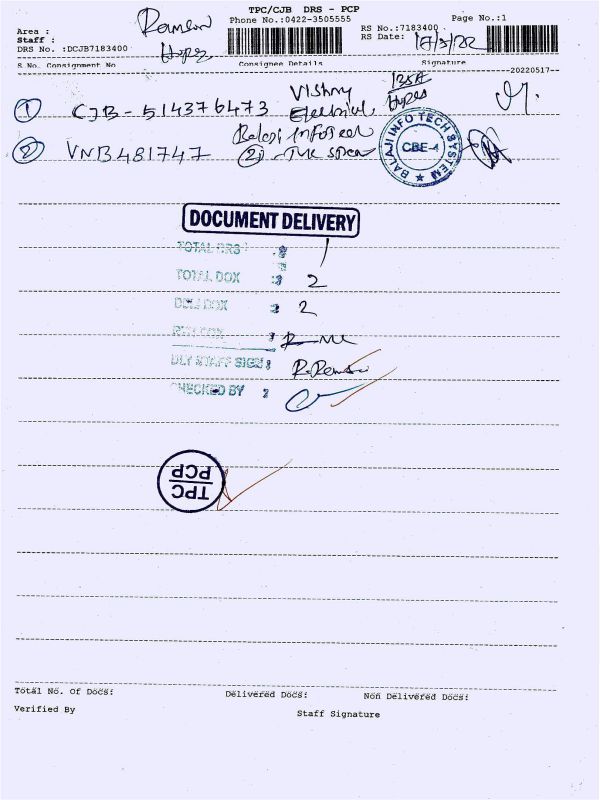 TPC/CJB DRS - PCP
Phone No.:0422-3505555 Page No.:1
Area : RS No.:7183400
Staff : RS Date: 17/5/22
DRS No. :DCJB7183400
S No. Consignment No Consignee Details Signature
--20220517--
① CJB-514376473 Vishnu Electricals
② VNB481747 Balaji Infotech
BALAJI INFO TECH SYSTEM
CBE-4
DOCUMENT DELIVERY
TOTAL DRS : 1
TOTAL DOX : 2
DELI DOX : 2
DLY STAFF SIGN :
CHECKED BY :
TPC
PCP
Total No. Of Docs: Delivered Docs: Non Delivered Docs:
Verified By Staff Signature